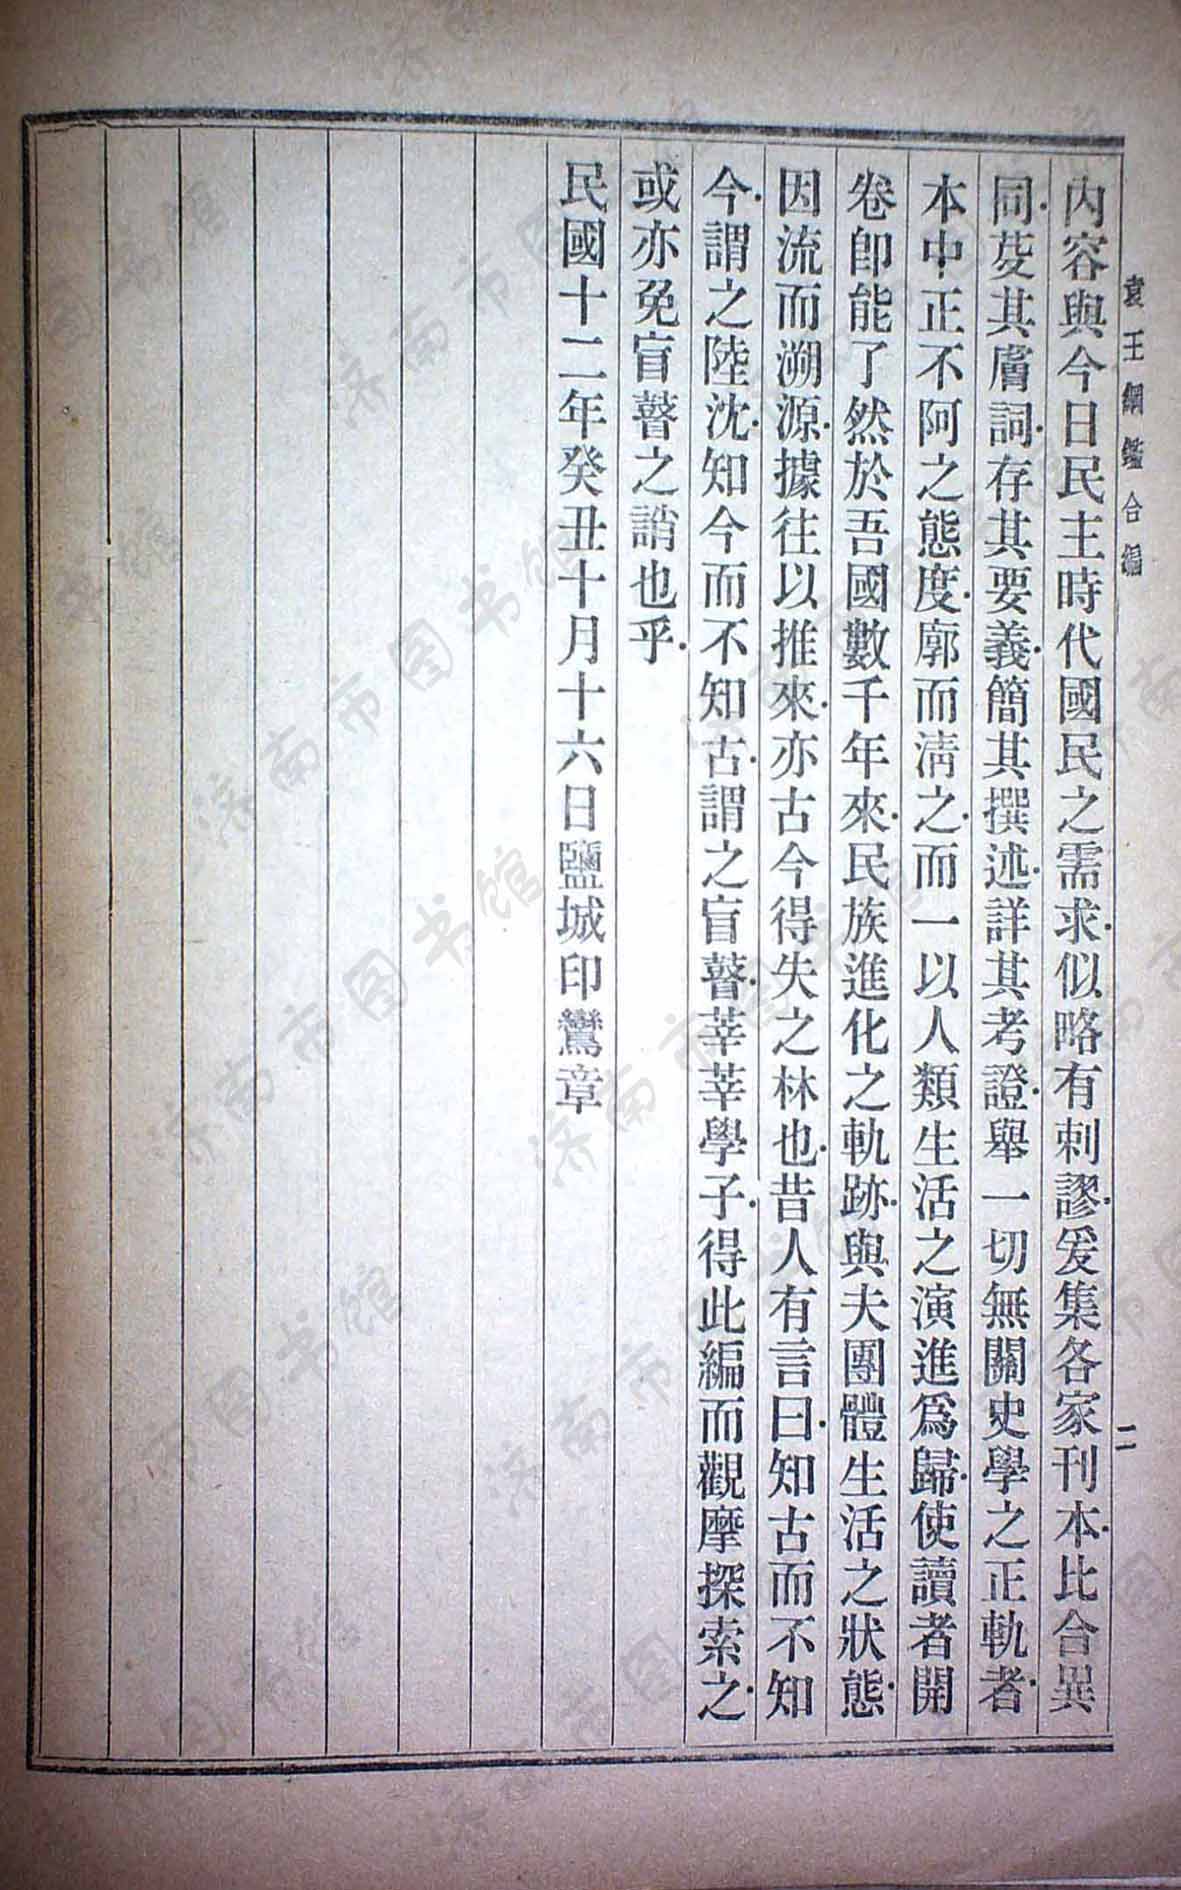 袁王綱鑑合編
二
內容與今日民主時代國民之需求.似略有刺謬.爰集各家刊本.比合異
同.芟其膚詞.存其要義.簡其撰述.詳其考證.舉一切無關史學之正軌者.
本中正不阿之態度.廓而淸之.而一以人類生活之演進爲歸.使讀者開
卷卽能了然於吾國數千年來.民族進化之軌跡.與夫團體生活之狀態.
因流而溯源.據往以推來.亦古今得失之林也.昔人有言曰.知古而不知
今.謂之陸沈.知今而不知古.謂之盲瞽.莘莘學子.得此編而觀摩探索之.
或亦免盲瞽之誚也乎.
民國十二年癸丑十月十六日鹽城印鸞章
济南市图书馆